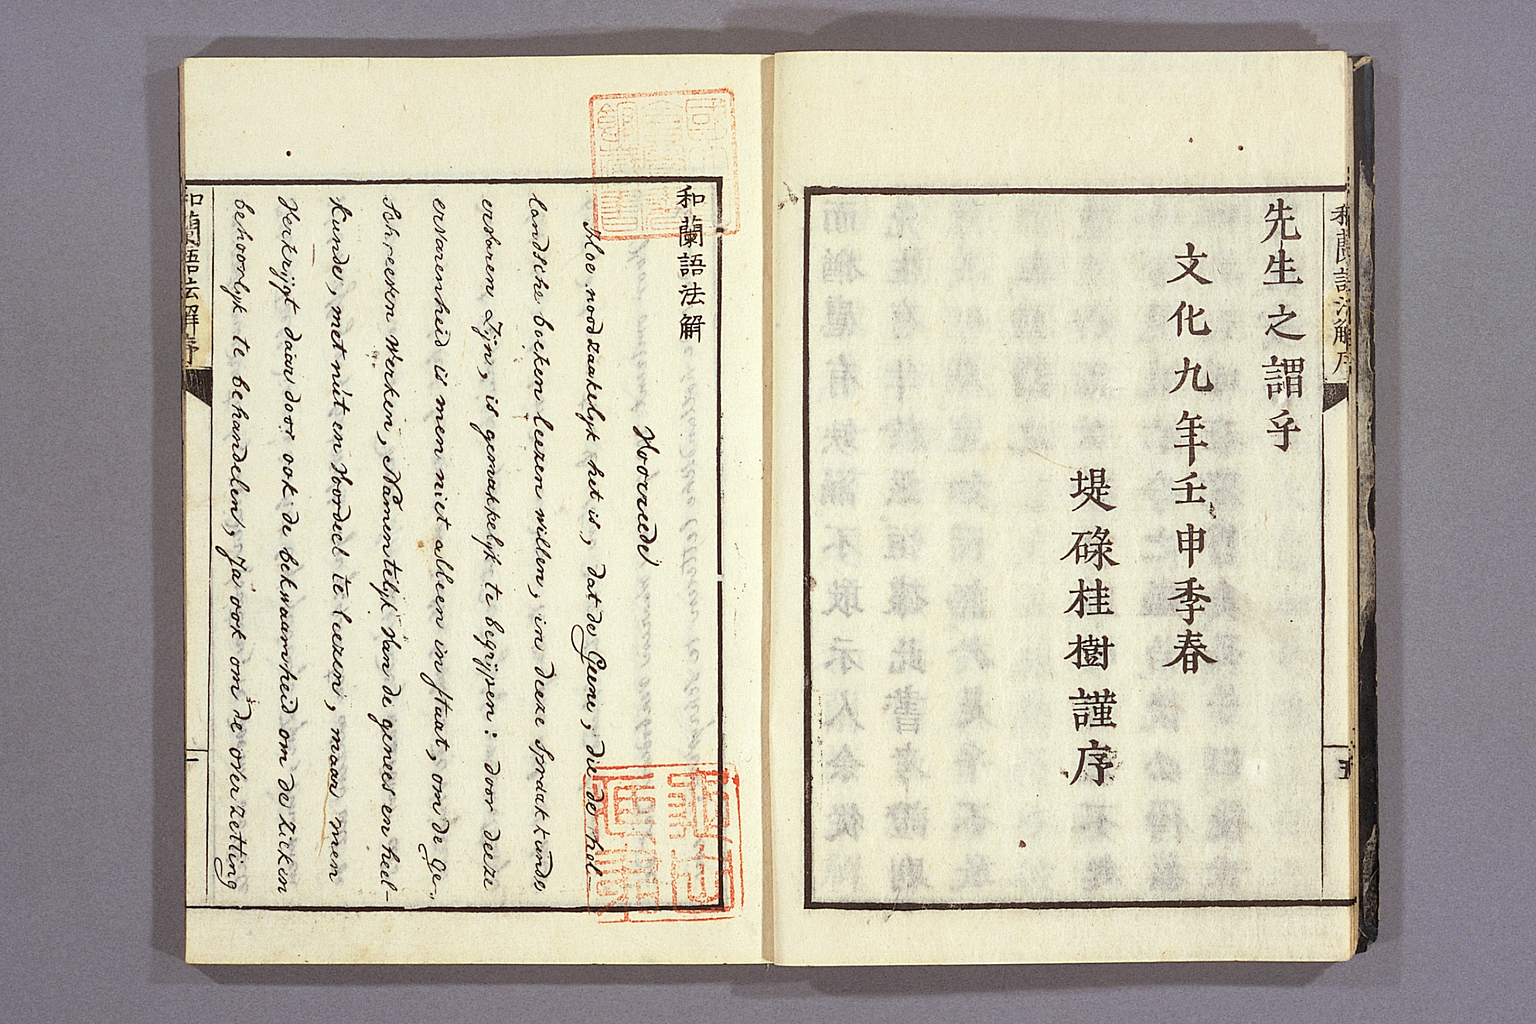 先生之謂乎
文化九年壬申季春
堤碌桂樹謹序
五
和蘭語法解
Voorrede
Hoe noodzaakelyk het is, dat de Geene, die de hol-
landsche boeken leezen willen, in deeze Spraakkunde
ervaren Zyn, is gemakkelyk te begrypen: door deeze
ervarenheid is men niet alleen in staat, om de Ge-
Schreeven Werken, Namentlyk Van de genees en heel-
kunde, met nut en Voordeel te leezen, maar men
Verkrijgt daar door ook de bekwaamheid om de zieken
behoorlyk te behandelen, Ja ook om de over zetting
和蘭語法解序